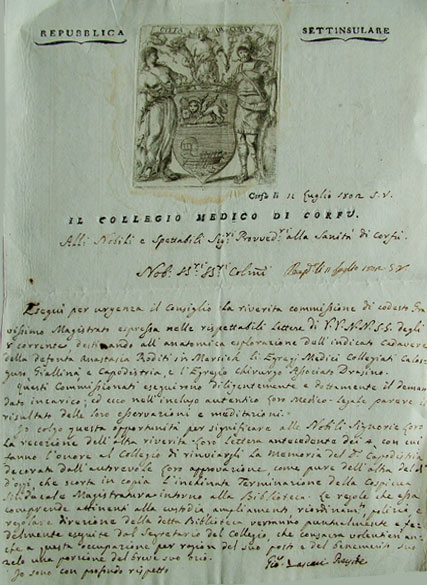 REPUBBLICA SETTINSULARE
CITTÀ DI CORFÙ
Corfù li 11 Luglio 1802 S. V.
IL COLLEGIO MEDICO DI CORFÙ.
Alli Nobili e Spettabili Sigri Provvedri alla Sanità di Corfù.
Nobi SSri SSri Colmi
Esegui per urgenza il Consiglio la riverita commissione di codesto Gra-
vissimo Magistrato espressa nelle rispettabili Lettere di V.V.N.N.S.S. degli
corrente destinando all'anatomica esplorazione dell'indicato cadavere
della defonta Anastasia Roditi in li Egregi Medici Collegiati Calos-
guro Giallinà e Capodistria, e l'Egregio chirurgo Associato
Questi Commissionati eseguirono diligentemente e dottamente il deman-
dato incarico; ed ecco nell'inchiuso autentico Loro Medico-Legale parere il
risultato delle loro osservazioni e meditazioni.
Io colgo questa opportunità per significare alle Nobili Signorie Loro
la recezione dell'alta riverita Loro Lettera antecedente dei con cui
fanno l'onore al Collegio di rinviargli la Memoria del Dr Capodistria
decorata dall'autrevole Loro approvazione, come pure dell'altra dei
d'oggi, che scorta in copia l'inchinata Terminazione della Cospicua
Sindacale Magistratura intorno alla Biblioteca. Le regole che essa
comprende attinenti alla custodia ampliamenti, riordinamti, polizia e
regolare direzione della detta Biblioteca verranno puntualmente e fe-
delmente esguite dal Segretario del Collegio, che consacra volentieri an-
che a questa occupazione per ragion del suo posto e del benemerito suo
zelo una porzione del breve suo ozio.
Io sono con profondo rispetto
Gio: Lascari